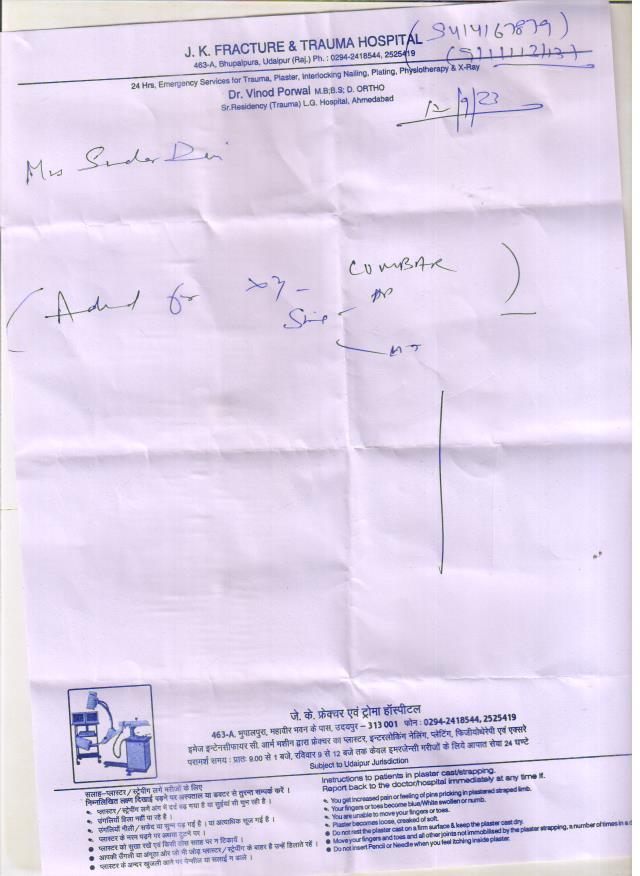 J. K. FRACTURE & TRAUMA HOSPITAL
463-A, Bhupalpura, Udaipur (Raj.) Ph. : 0294-2418544, 2525419
(9414167879)
24 Hrs, Emergency Services for Trauma, Plaster, Interlocking Nailing, Plating, Physiotherapy & X-Ray
Dr. Vinod Porwal M.B;B.S; D. ORTHO
Sr.Residency (Trauma) L.G. Hospital, Ahmedabad
12/9/23
Mrs Sunder Devi
for
LUMBAR
Spine
AP
जे. के. फ्रेक्चर एवं ट्रोमा हॉस्पीटल
463-A, भुपालपुरा, महावीर भवन के पास, उदयपुर – 313 001 फोन : 0294-2418544, 2525419
इमेज इन्टेनसीफायर सी. आर्म मशीन द्वारा फ्रेक्चर का प्लास्टर, इन्टरलोकिंग नेलिंग, प्लेटिंग, फिजीयोथेरेपी एवं एक्सरे
परामर्श समय : प्रातः 9.00 से 1 बजे, रविवार 9 से 12 बजे तक केवल इमरजेन्सी मरीजों के लिए आपात सेवा 24 घण्टे
Subject to Udaipur Jurisdiction
सलाह–प्लास्टर/स्ट्रेपींग लगे मरीजों के लिए
निम्नलिखित लक्षण दिखाई पड़ने पर अस्पताल या डाक्टर से तुरन्त सम्पर्क करें।
प्लास्टर/स्ट्रेपींग लगे अंग में दर्द बढ़ गया है या सुईयां सी चुभ रही है।
उंगलियाँ हिला नहीं पा रहे है।
उंगलियाँ नीली/सफेद या सुन्न पड़ गई है। या अत्यधिक सूज गई है।
प्लास्टर के नरम पड़ने पर अथवा टूटने पर।
प्लास्टर को सुखा रखें एवं किसी ठोस सतह पर न टिकायें।
आपकी उँगली या अंगूठा और जो भी जोड़ प्लास्टर/स्ट्रेपींग के बाहर है उन्हें हिलाते रहें।
प्लास्टर के अन्दर खुजली आने पर पेन्सील या सलाई न डाले।
Instructions to patients in plaster cast/strapping.
Report back to the doctor/hospital immediately at any time if.
You get increased pain or feeling of pins pricking in plastered straped limb.
Your fingers or toes become blue/White swollen or numb.
You are unable to move your fingers or toes.
Plaster becomes loose, creaked of soft.
Do not rest the plaster cast on a firm surface & keep the plaster cast dry.
Move your fingers and toes and all other joints not immobilised by the plaster strapping, a number of times in a
Do not insert Pencil or Needle when you feel itching inside plaster.